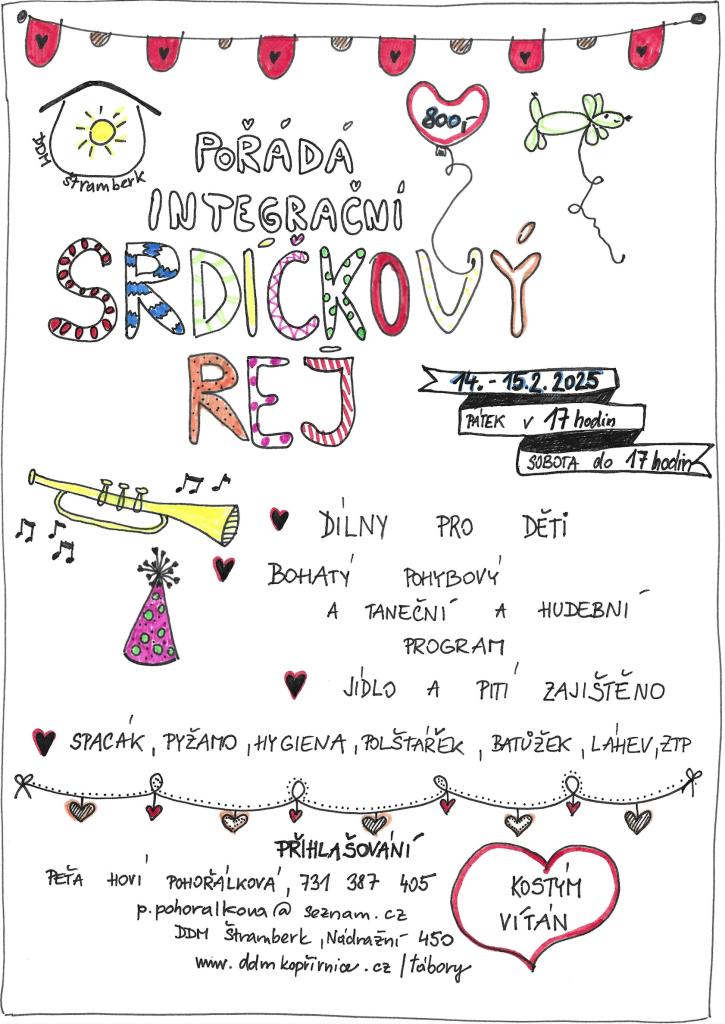 DDM
Štramberk
POŘÁDÁ
800,-
INTEGRAČNÍ
SRDÍČKOVÝ
REJ
14. - 15.2. 2025
PÁTEK v 17 hodin
SOBOTA do 17 hodin
DÍLNY PRO DĚTI
BOHATÝ POHYBOVÝ
A TANEČNÍ A HUDEBNÍ
PROGRAM
JÍDLO A PITÍ ZAJIŠTĚNO
SPACÁK, PYŽAMO, HYGIENA, POLŠTÁŘEK, BATŮŽEK, LÁHEV, ZTP
PŘIHLAŠOVÁNÍ
PEŤA HOVI POHOŘÁLKOVÁ, 731 387 405
p.pohoralkova@seznam.cz
DDM Štramberk, Nádražní 450
www.ddmkoprivnice.cz/tabory
KOSTÝM
VÍTÁN